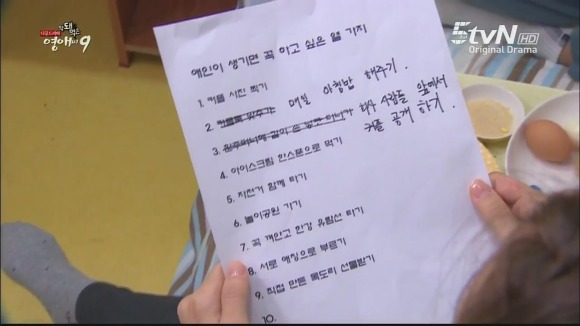 다큐드라마
막돼먹은
영애씨 9
tvN HD
Original Drama
애인이 생기면 꼭 하고 싶은 열 가지
1. 커플 사진 찍기
2. 커플룩 맞추기 매일 아침밥 해주기.
3. 회사 사람들 앞에서
커플 공개 하기.
4. 아이스크림 한스푼으로 먹기
5. 자전거 함께 타기
6. 놀이공원 가기
7. 꼭 껴안고 한강 유람선 타기
8. 서로 애칭으로 부르기
9. 직접 만든 목도리 선물받기
10.